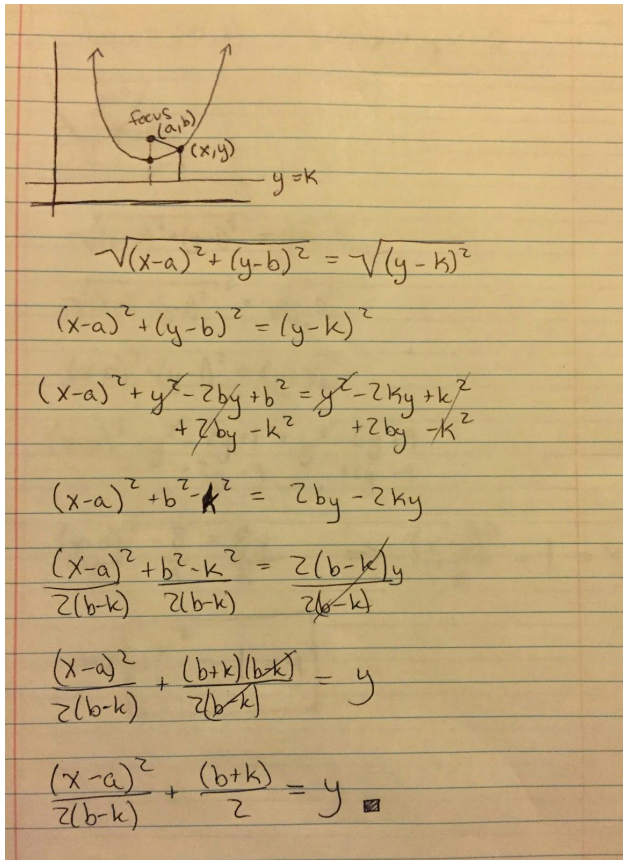 focus
(a,b)
(x,y)
y = k
√(x-a)² + (y-b)² = √(y-k)²
(x-a)² + (y-b)² = (y-k)²
(x-a)² + y² - 2by + b² = y² - 2ky + k²
+ 2by - k² +2by - k²
(x-a)² + b² - k² = 2by - 2ky
(x-a)² + b² - k² = 2(b-k)y
2(b-k) 2(b-k) 2(b-k)
(x-a)² + (b+k)(b-k) = y
2(b-k) 2(b-k)
(x-a)² + (b+k) = y
2(b-k) 2